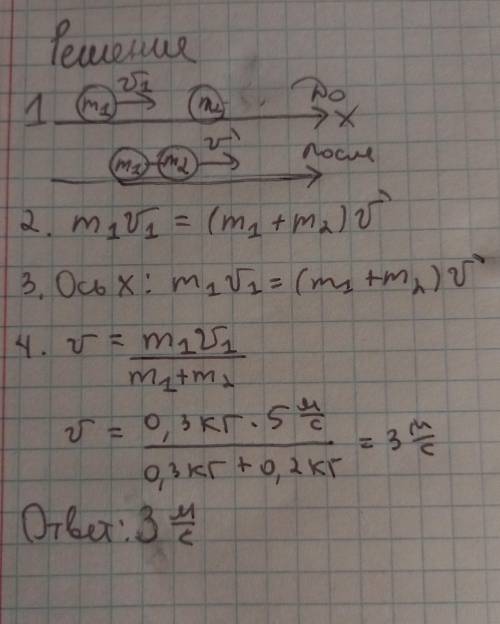 Решения
1 m₁ v₁ m₂ До X
m₁ m₂ v⃗ после
2. m₁v₁ = (m₁ + m₂) v⃗
3. Ось X: m₁v₁ = (m₁ + m₂) v⃗
4. v = m₁v₁ / m₁+m₂
v = 0,3 кг · 5 м/с / 0,3 кг + 0,2 кг = 3 м/с
Ответ: 3 м/с